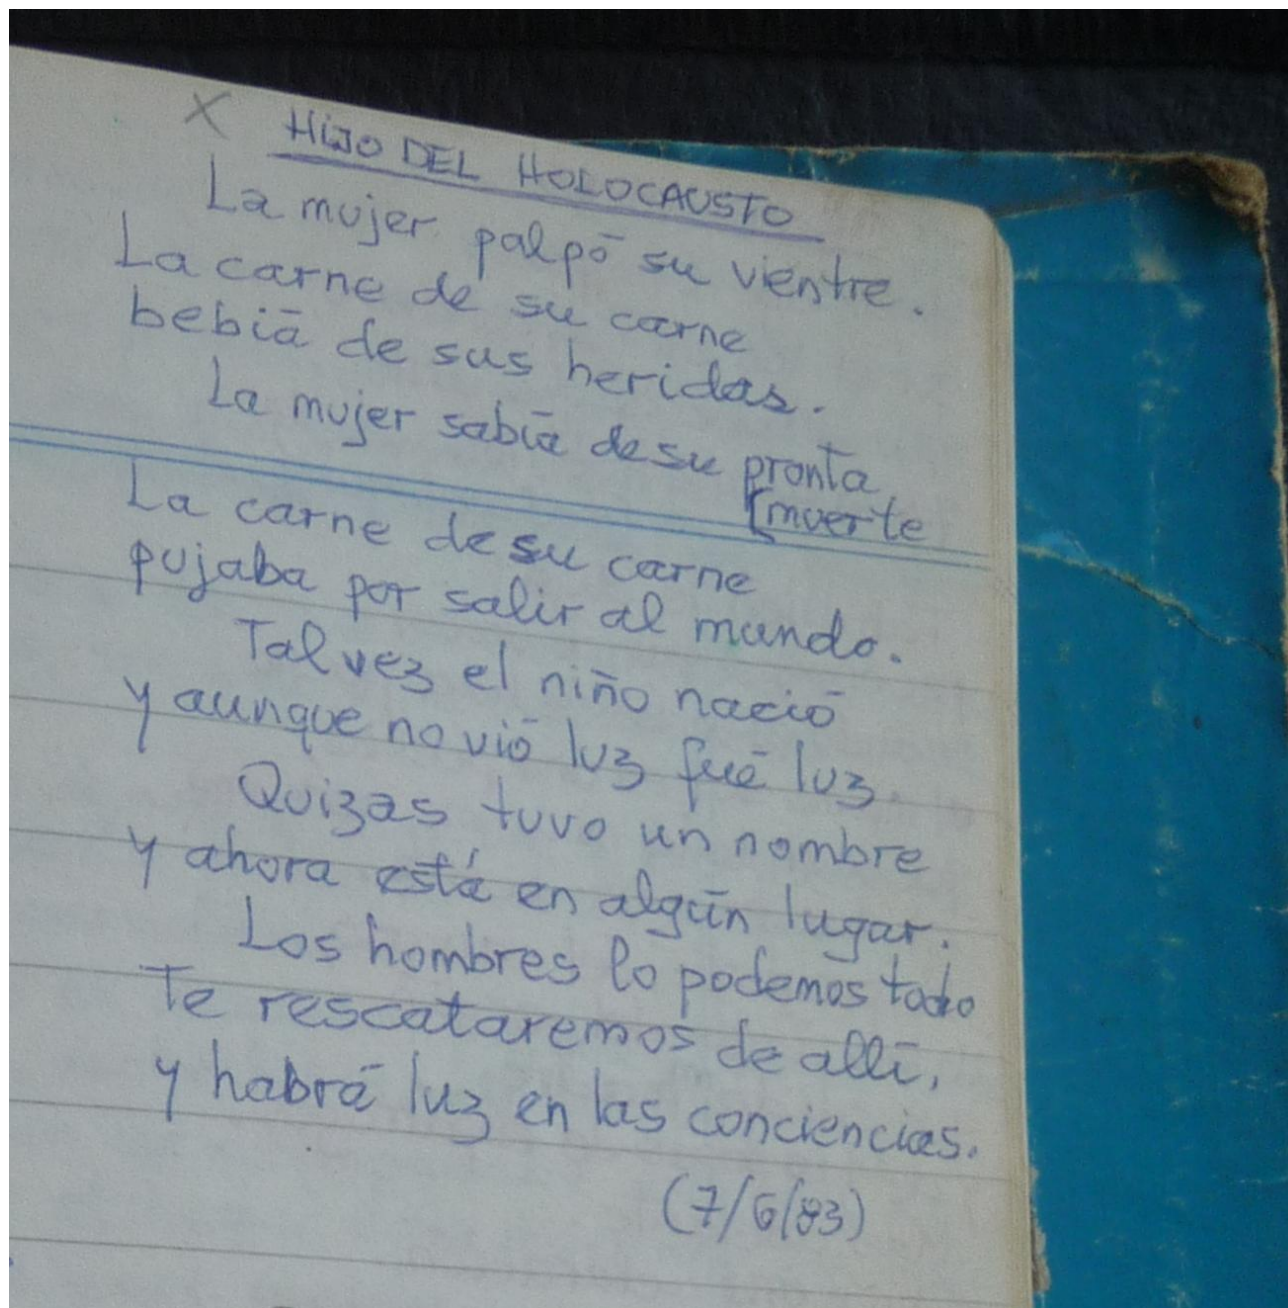 X HIJO DEL HOLOCAUSTO
La mujer palpó su vientre.
La carne de su carne
bebiá de sus heridas.
La mujer sabiá de su pronta
[muerte
La carne de su carne
pujaba por salir al mundo.
Tal vez el niño nació
y aunque no vió luz fué luz.
Quizas tuvo un nombre
y ahora está en algún lugar.
Los hombres lo podemos todo
Te rescataremos de allí,
y habrá luz en las conciencias.
(7/6/83)